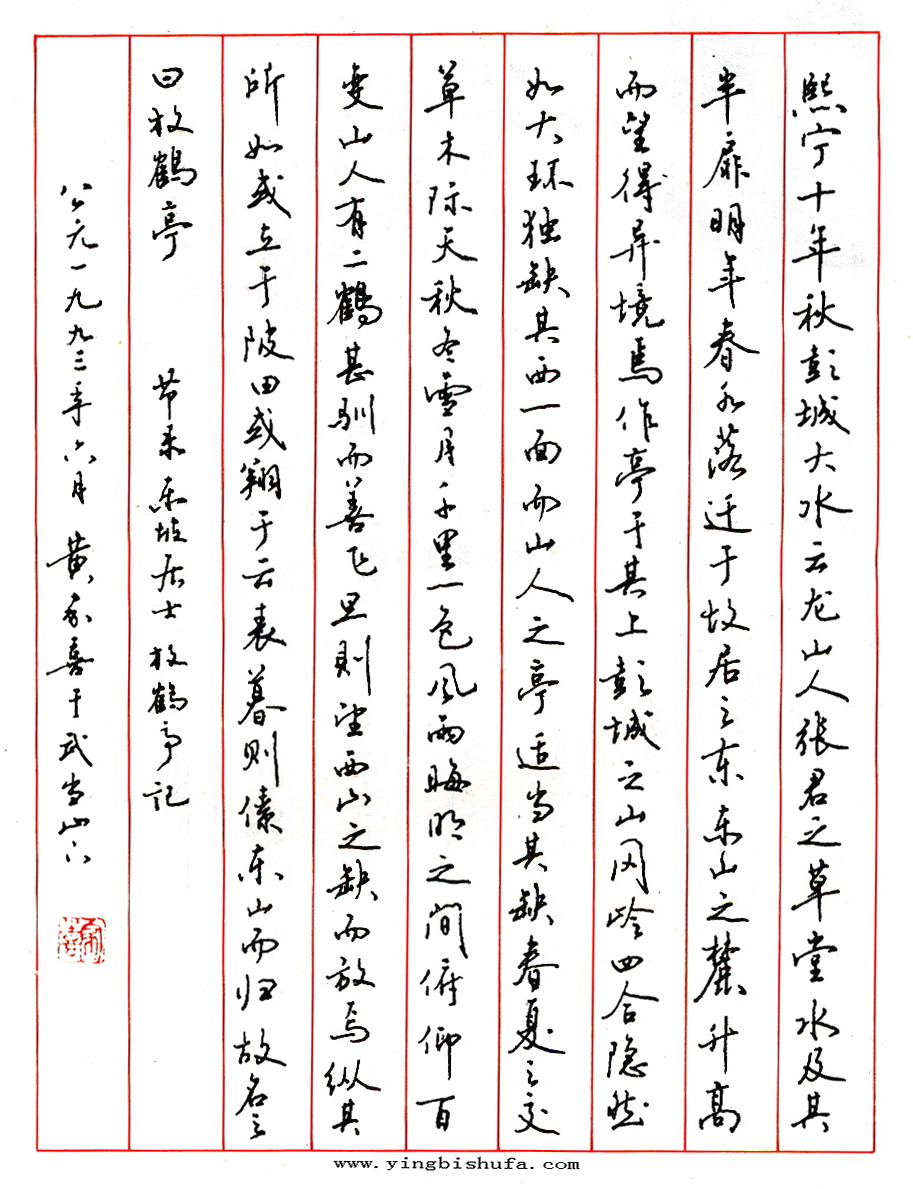 熙宁十年秋彭城大水云龙山人张君之草堂水及其
半扉明年春水落迁于故居之东东山之麓升高
而望得异境焉作亭于其上彭城之山冈岭四合隐然
如大环独缺其西一面而山人之亭适当其缺春夏之交
草木际天秋冬雪月千里一色风雨晦明之间俯仰百
变山人有二鹤甚驯而善飞旦则望西山之缺而放焉纵其
所如或立于陂田或翔于云表暮则傃东山而归故名之
曰放鹤亭 节录东坡居士放鹤亭记
公元一九九三年六月 黄喜于武当山下
www.yingbishufa.com